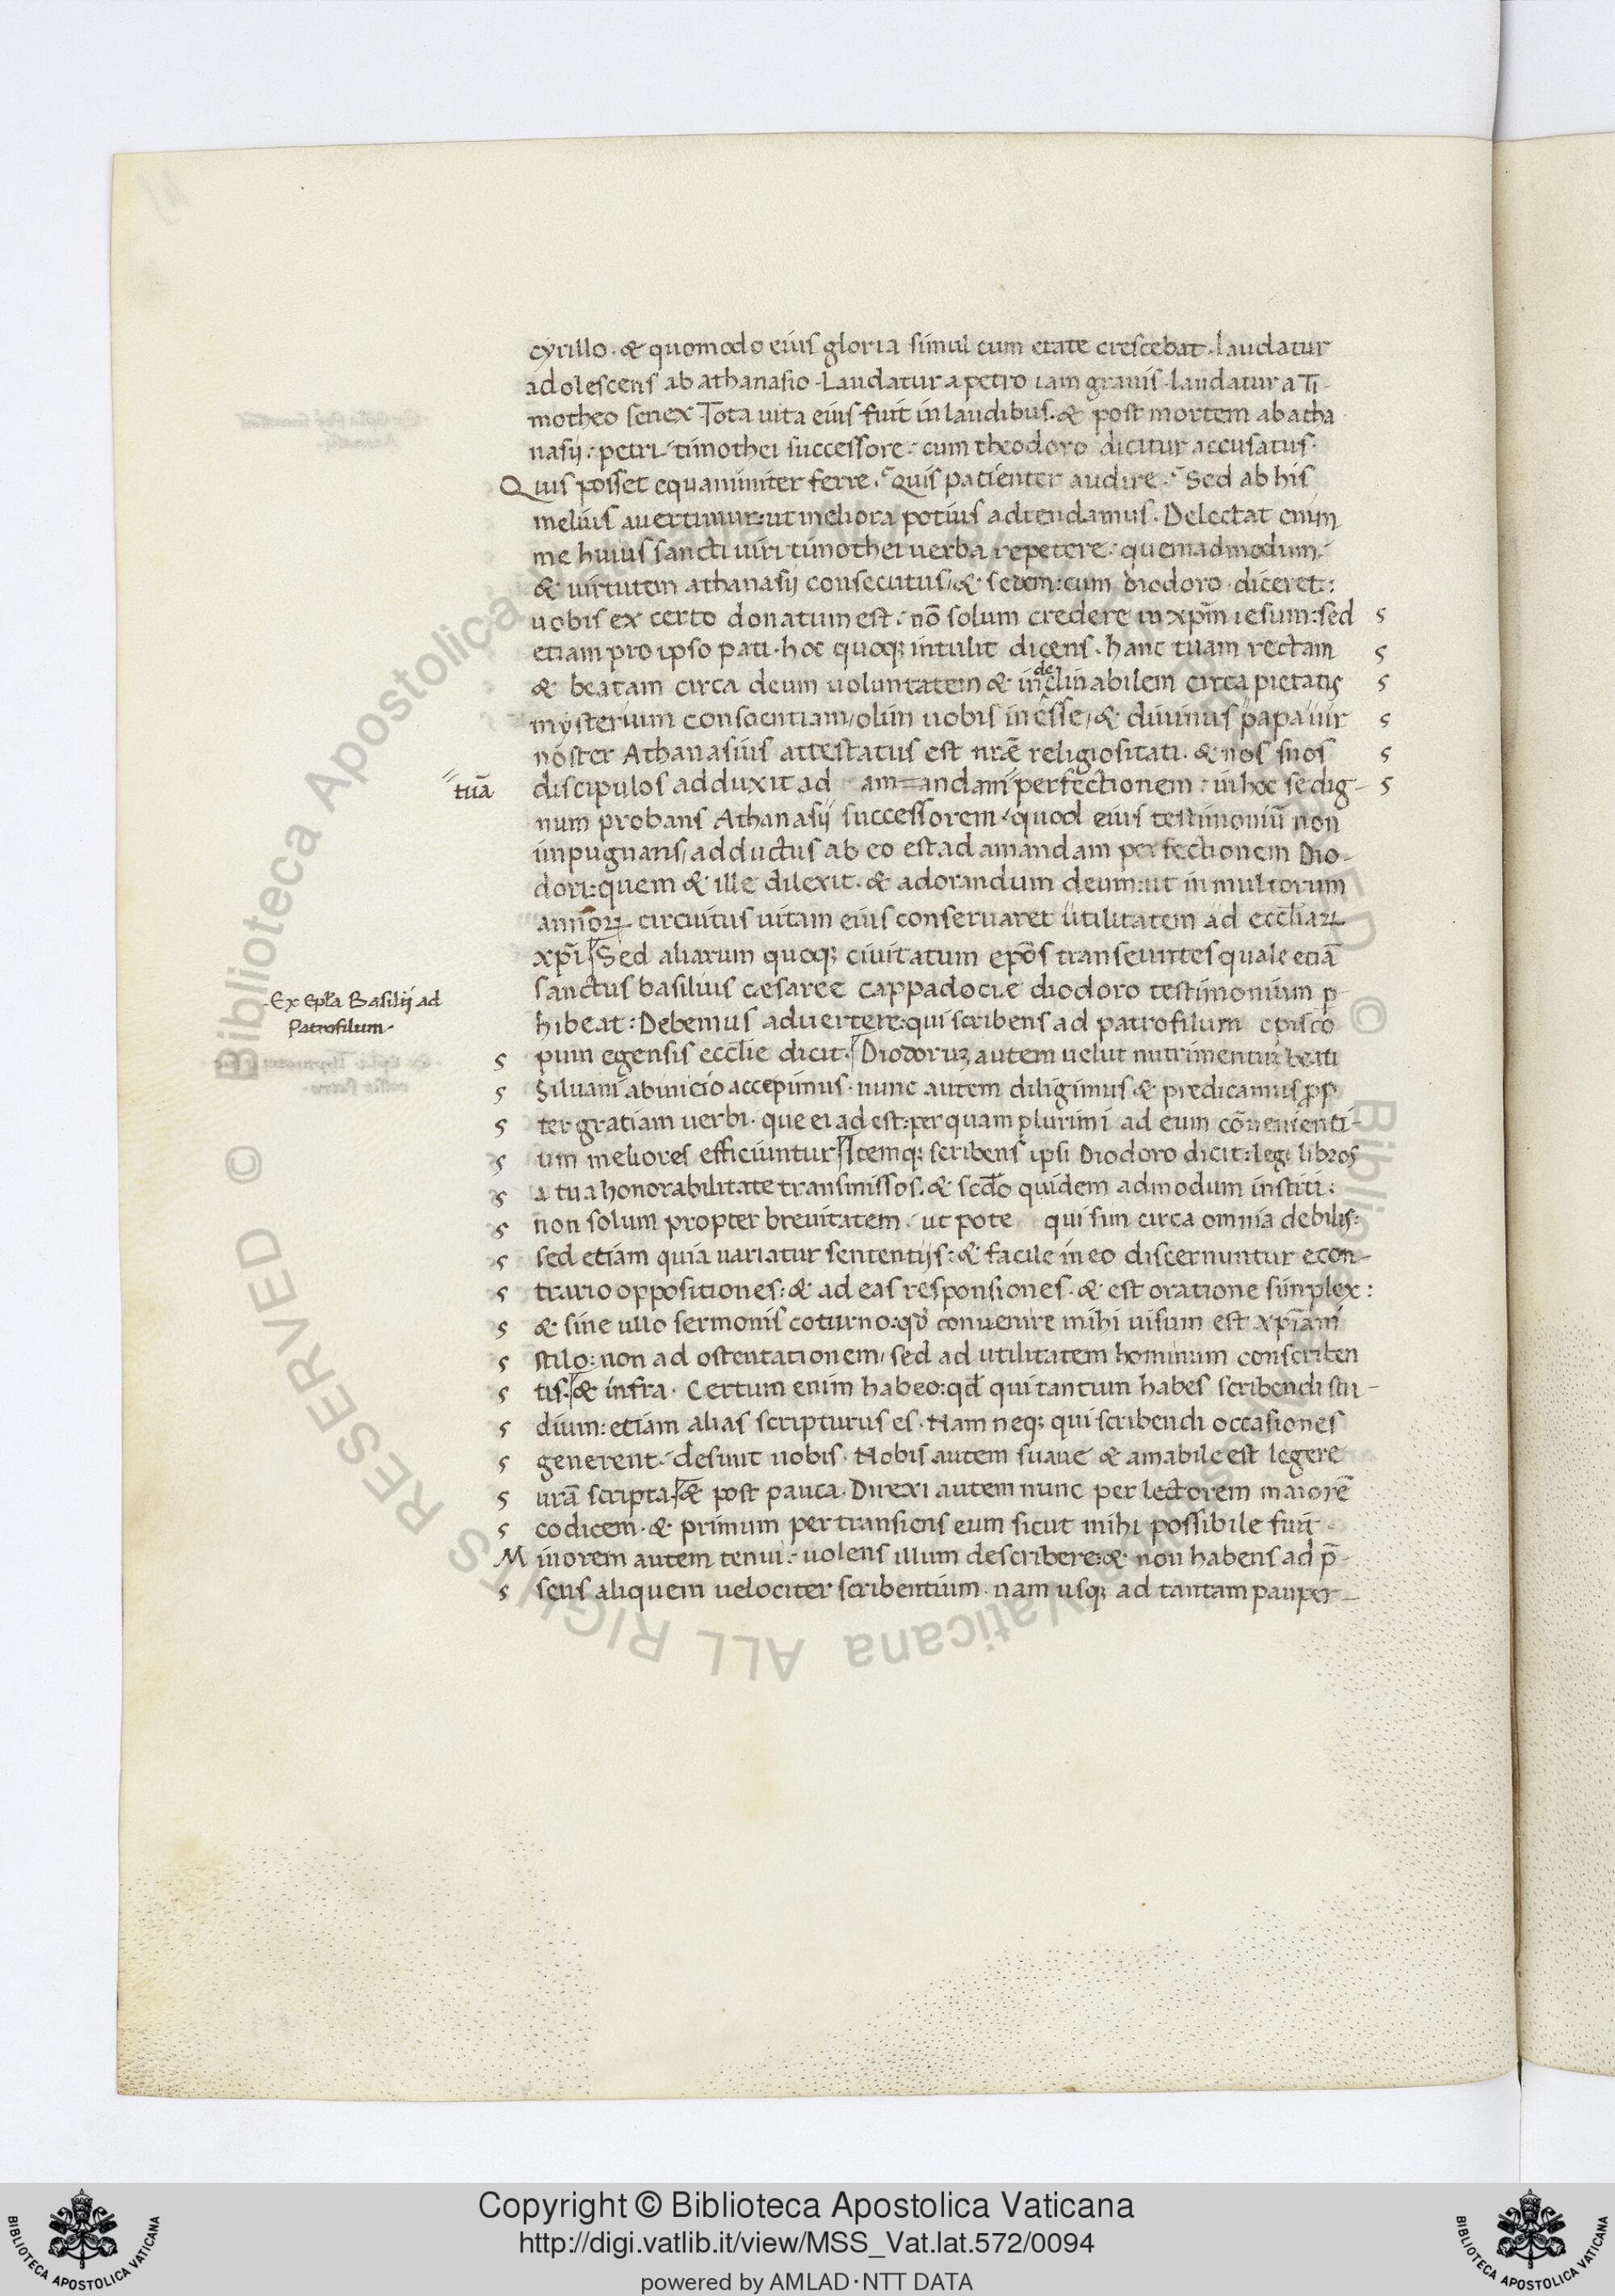 cyrillo · & quomodo eius gloria simul cum etate crescebat · laudatur
adolescens ab athanasio · Laudatur a petro iam grauis · laudatur a Ti-
motheo senex · Tota uita eius fuit in laudibus · & post mortem ab atha
nasij : petri : timothei successore : cum theodoro dicitur accusatus ·
Quis posset equanimiter ferre ? Quis patienter audire ? Sed ab his
melius auertimur : ut meliora potius adtendamus · Delectat enim
me huius sancti uiri timothei uerba repetere : quemadmodum
& uirtutem athanasij consecutus / & sedem : cum diodoro diceret :
uobis ex certo donatum est : nō solum credere in xp̄m iesum : sed
etiam pro ipso pati · hoc quoq; intulit dicens · hanc tuam rectam
& beatam circa deum uoluntatem & indeclinabilem circa pietatis
mysterium consocntiam / olim uobis in esse / & diuinus papa uir
noster Athanasius attestatus est nr̄æ religiositati · & nos suos
tuā
discipulos adduxit ad am=andam perfectionem : in hoc se dig-
num probans Athanasij successorem / quod eius testimoniū non
impugnans / adductus ab eo est ad amandam perfectionem Dio-
dori : quem & ille dilexit · & adorandum deum : ut in multorum
annoꝝ circuitus uitam eius conseruaret utilitatem ad eccl̄iaꝝ
xp̄i Sed aliarum quoq; ciuitatum ep̄os transeuntes quale etiā
sanctus basilius cesaree cappadocie diodoro testimonium p
Ex epl̄a Basilij ad
Patrofilum ·
hibeat : Debemus aduertere : qui scribens ad patrofilum episco
pum egensis eccl̄ie dicit · Diodoruꝫ autem uelut nutrimentuꝫ beati
Siluani ab inicio accepimus · nunc autem diligimus & predicamus prop
ter gratiam uerbi · que ei ad est : per quam plurimi ad eum cōuenienti-
um meliores efficiuntur Itemq; scribens ipsi Diodoro dicit : legi libros
a tua honorabilitate transmissos · & scd̄o quidem admodum institi :
non solum propter breuitatem · ut pote qui sim circa omnia debilis :
sed etiam quia uariatur sententijs : & facile in eo discernuntur econ-
trario oppositiones : & ad eas responsiones · & est oratione simplex :
& sine ullo sermonis coturno : qd̄ conuenire mihi uisum est xp̄iani
stilo : non ad ostentationem / sed ad utilitatem hominum conscriben
tis · & infra · Certum enim habeo : qd̄ qui tantum habes scribendi stu-
dium : etiam alias scripturus es · Nam neq; qui scribendi occasiones
generent · desunt nobis · Nobis autem suaue & amabile est legere
urā scripta & post pauca · Direxi autem nunc per lectorem maiorē
codicem · & primum per transiens eum sicut mihi possibile fuit ·
Minorem autem tenui · uolens illum describere : & non habens ad p̄-
sens aliquem uelociter scribentium · nam usq; ad tantam pauper-
© Biblioteca Apostolica Vaticana ALL RIGHTS RESERVED
Copyright © Biblioteca Apostolica Vaticana
http://digi.vatlib.it/view/MSS_Vat.lat.572/0094
powered by AMLAD·NTT DATA
BIBLIOTECA APOSTOLICA VATICANA
BIBLIOTECA APOSTOLICA VATICANA